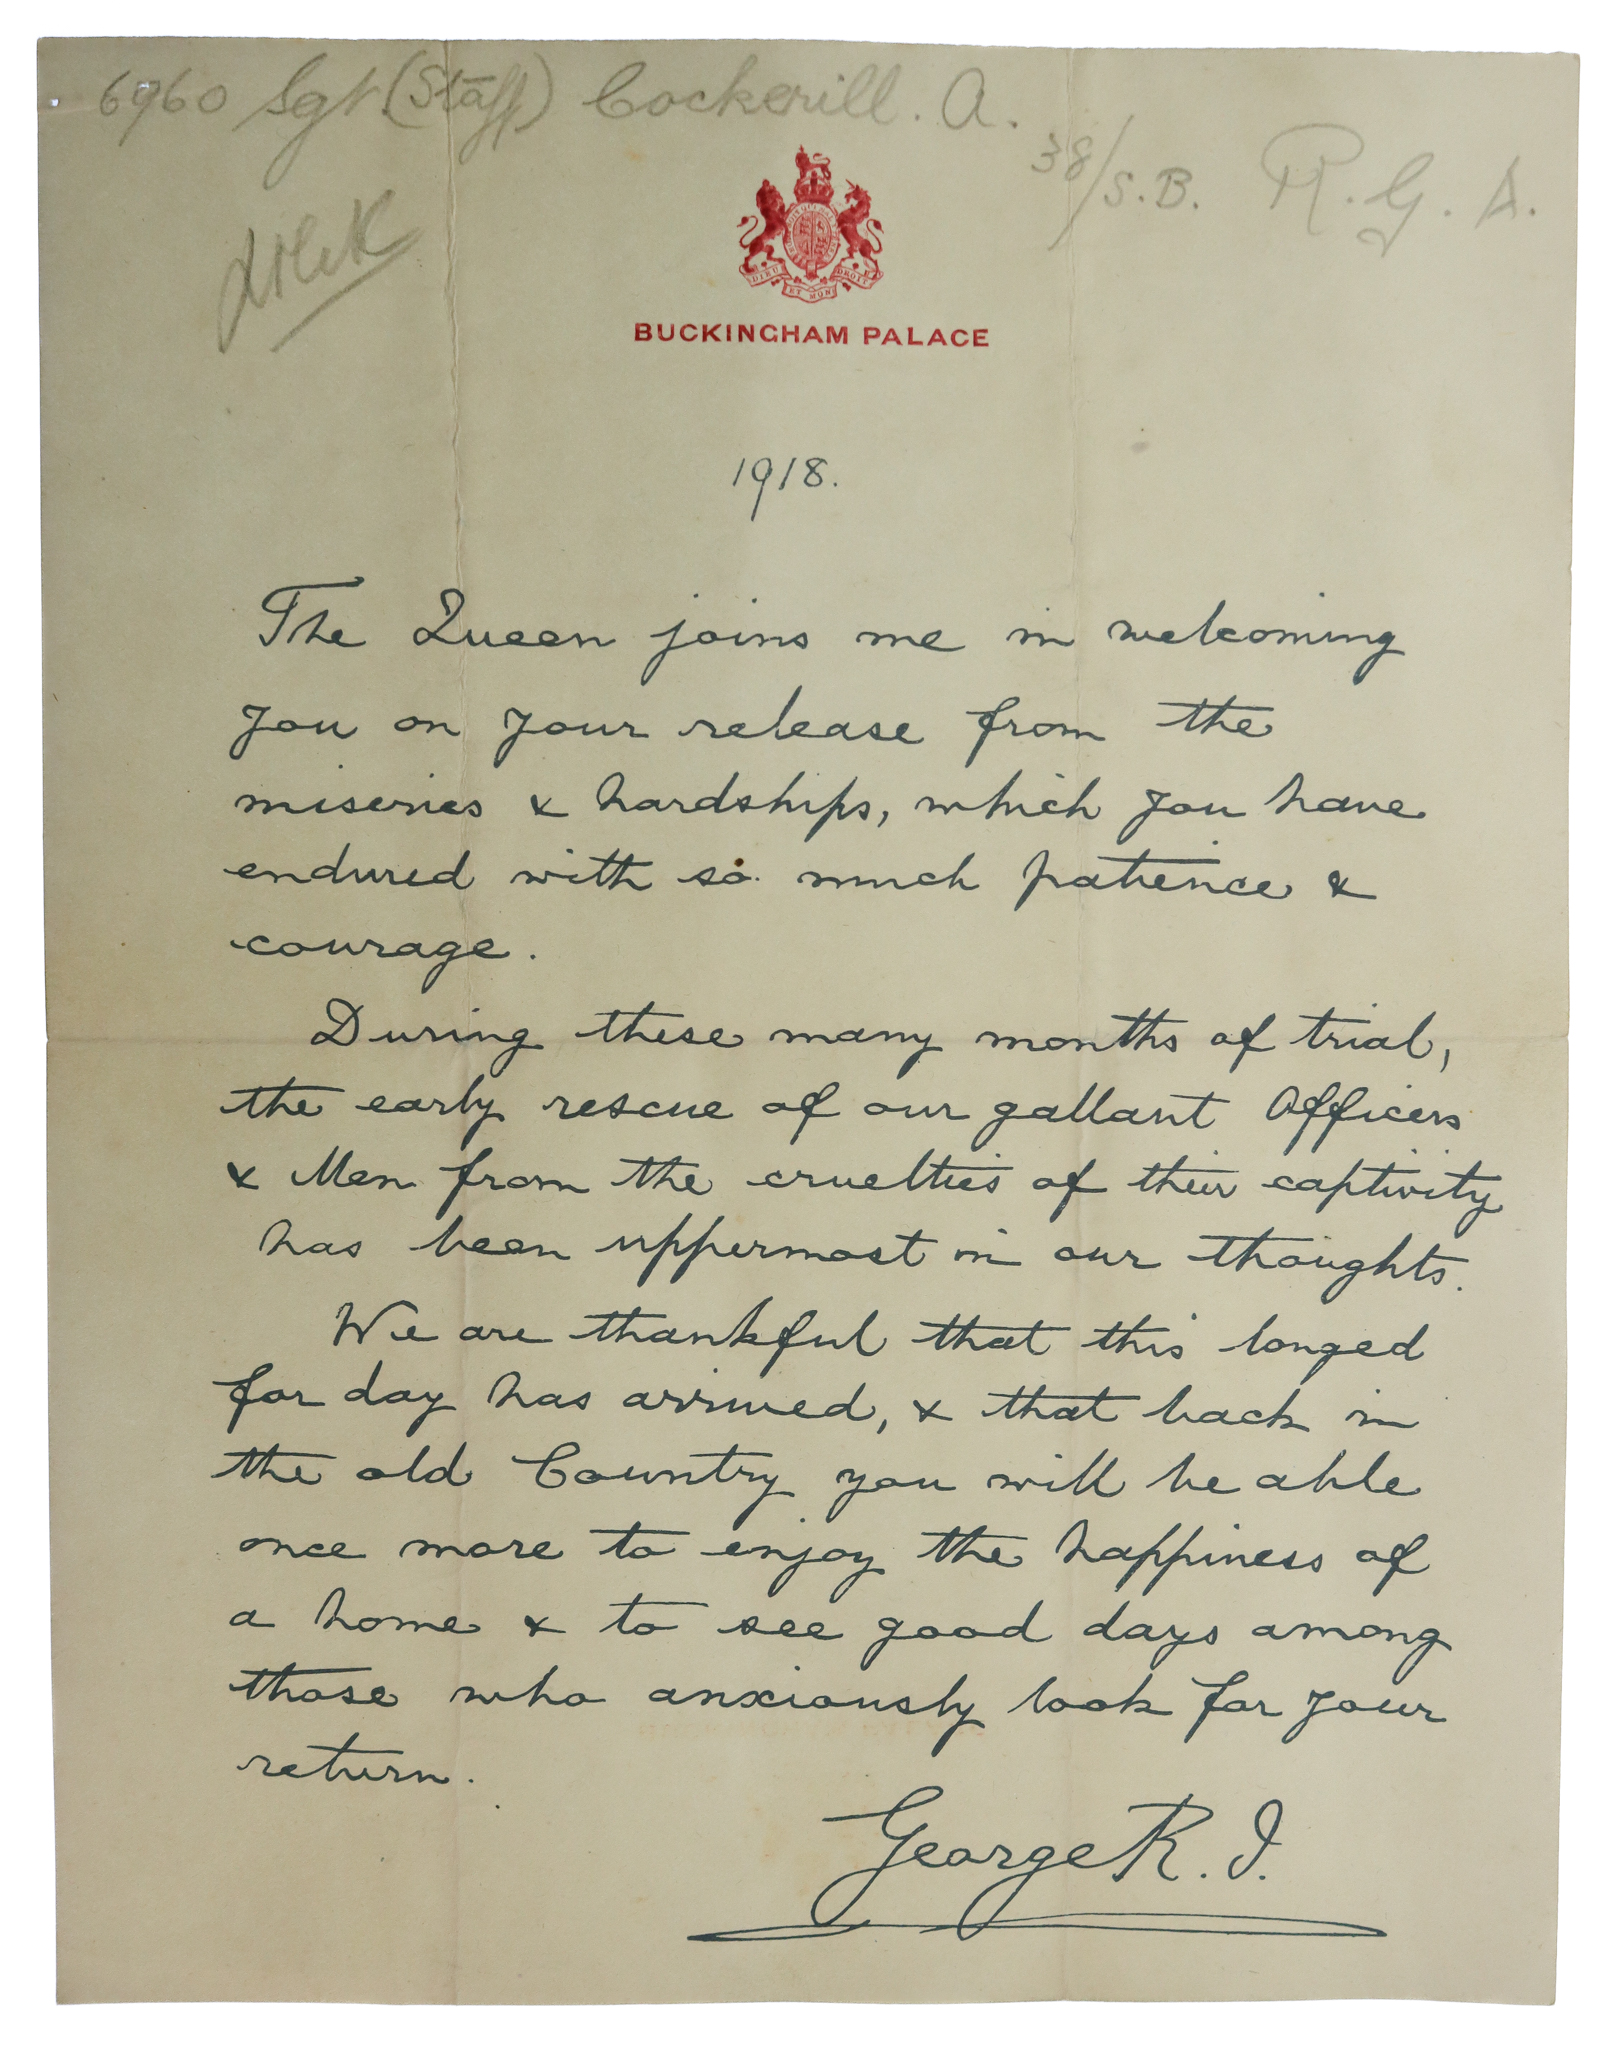 6960 Sgt (Staff) Cockerill. A.
38/S.B. R.G.A.
DIEU ET MON DROIT
BUCKINGHAM PALACE
1918.
The Queen joins me in welcoming
you on your release from the
miseries & hardships, which you have
endured with so much patience &
courage.
During these many months of trial,
the early rescue of our gallant Officers
& Men from the cruelties of their captivity
has been uppermost in our thoughts.
We are thankful that this longed
for day has arrived, & that back in
the old Country you will be able
once more to enjoy the happiness of
a home & to see good days among
those who anxiously look for your
return.
George R.I.